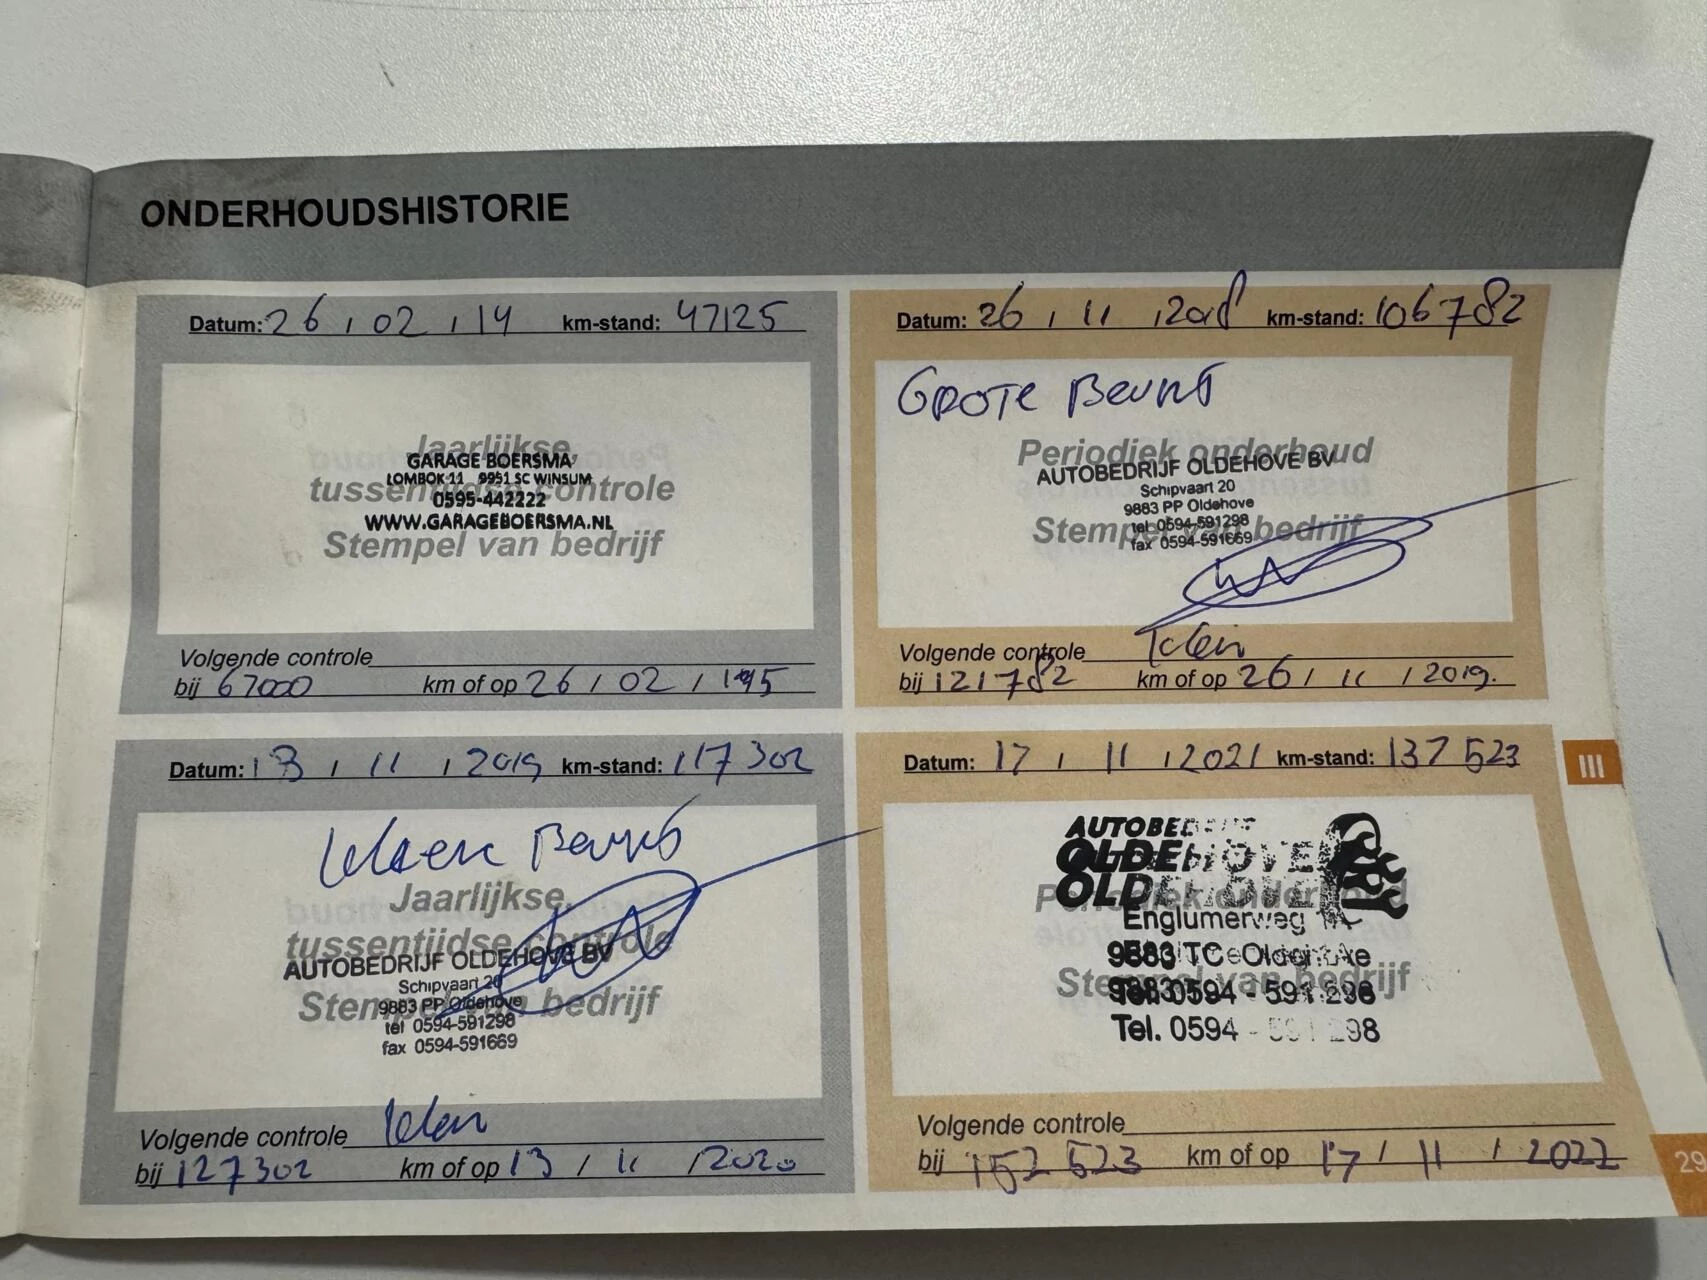 ONDERHOUDSHISTORIE
Datum: 26 / 02 / 14 km-stand: 47125
Jaarlijkse
GARAGE BOERSMA
LOMBOK 11 9951 SC WINSUM
tussentijdse controle
0595-442222
WWW.GARAGEBOERSMA.NL
Stempel van bedrijf
Volgende controle
bij 67000 km of op 26 / 02 / 15
Datum: 26 / 11 / 2018 km-stand: 106782
GROTE Beurt
Periodiek onderhoud
AUTOBEDRIJF OLDEHOVE BV
Schipvaart 20
9883 PP Oldehove
tel 0594-591298
Stempel van bedrijf
fax 0594-591669
Volgende controle Klein
bij 121782 km of op 26 / 11 / 2019.
Datum: 13 / 11 / 2019 km-stand: 117302
Kleine Beurt
Jaarlijkse
tussentijdse controle
AUTOBEDRIJF OLDEHOVE BV
Schipvaart 20
9883 PP Oldehove
Stempel van bedrijf
tel 0594-591298
fax 0594-591669
Volgende controle Klein
bij 127302 km of op 13 / 11 / 2020
Datum: 17 / 11 / 2021 km-stand: 137523
AUTOBEDRIJF
OLDEHOVE
OLDEHOVE
Periodiek onderhoud
Englumerweg
9883 TC Oldehove
Stempel van bedrijf
Tel. 0594 - 591 298
Tel. 0594 - 591 298
Volgende controle
bij 152 523 km of op 17 / 11 / 2022
III
29